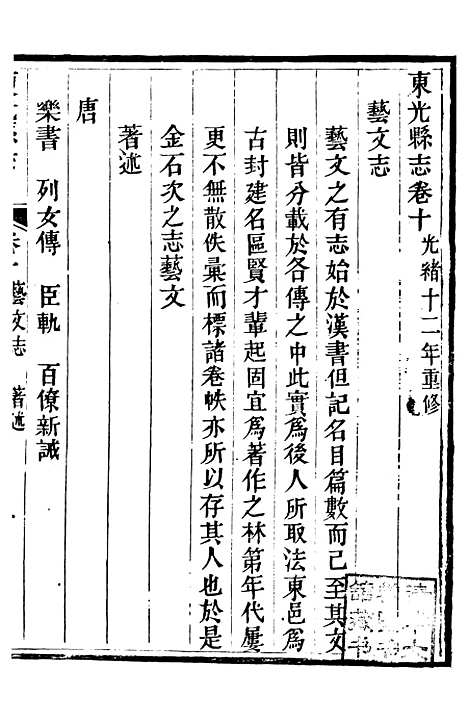 東光縣志卷十 光緒十二年重修
藝文志
藝文之有志始於漢書但記名目篇數而已至其文
則皆分載於各傳之中此實爲後人所取法東邑爲
古封建名區賢才輩起固宜爲著作之林第年代屢
更不無散佚彙而標諸卷帙亦所以存其人也於是
金石次之志藝文
著述
唐
樂書 列女傳 臣軌 百僚新誡
卷十藝文志 著述